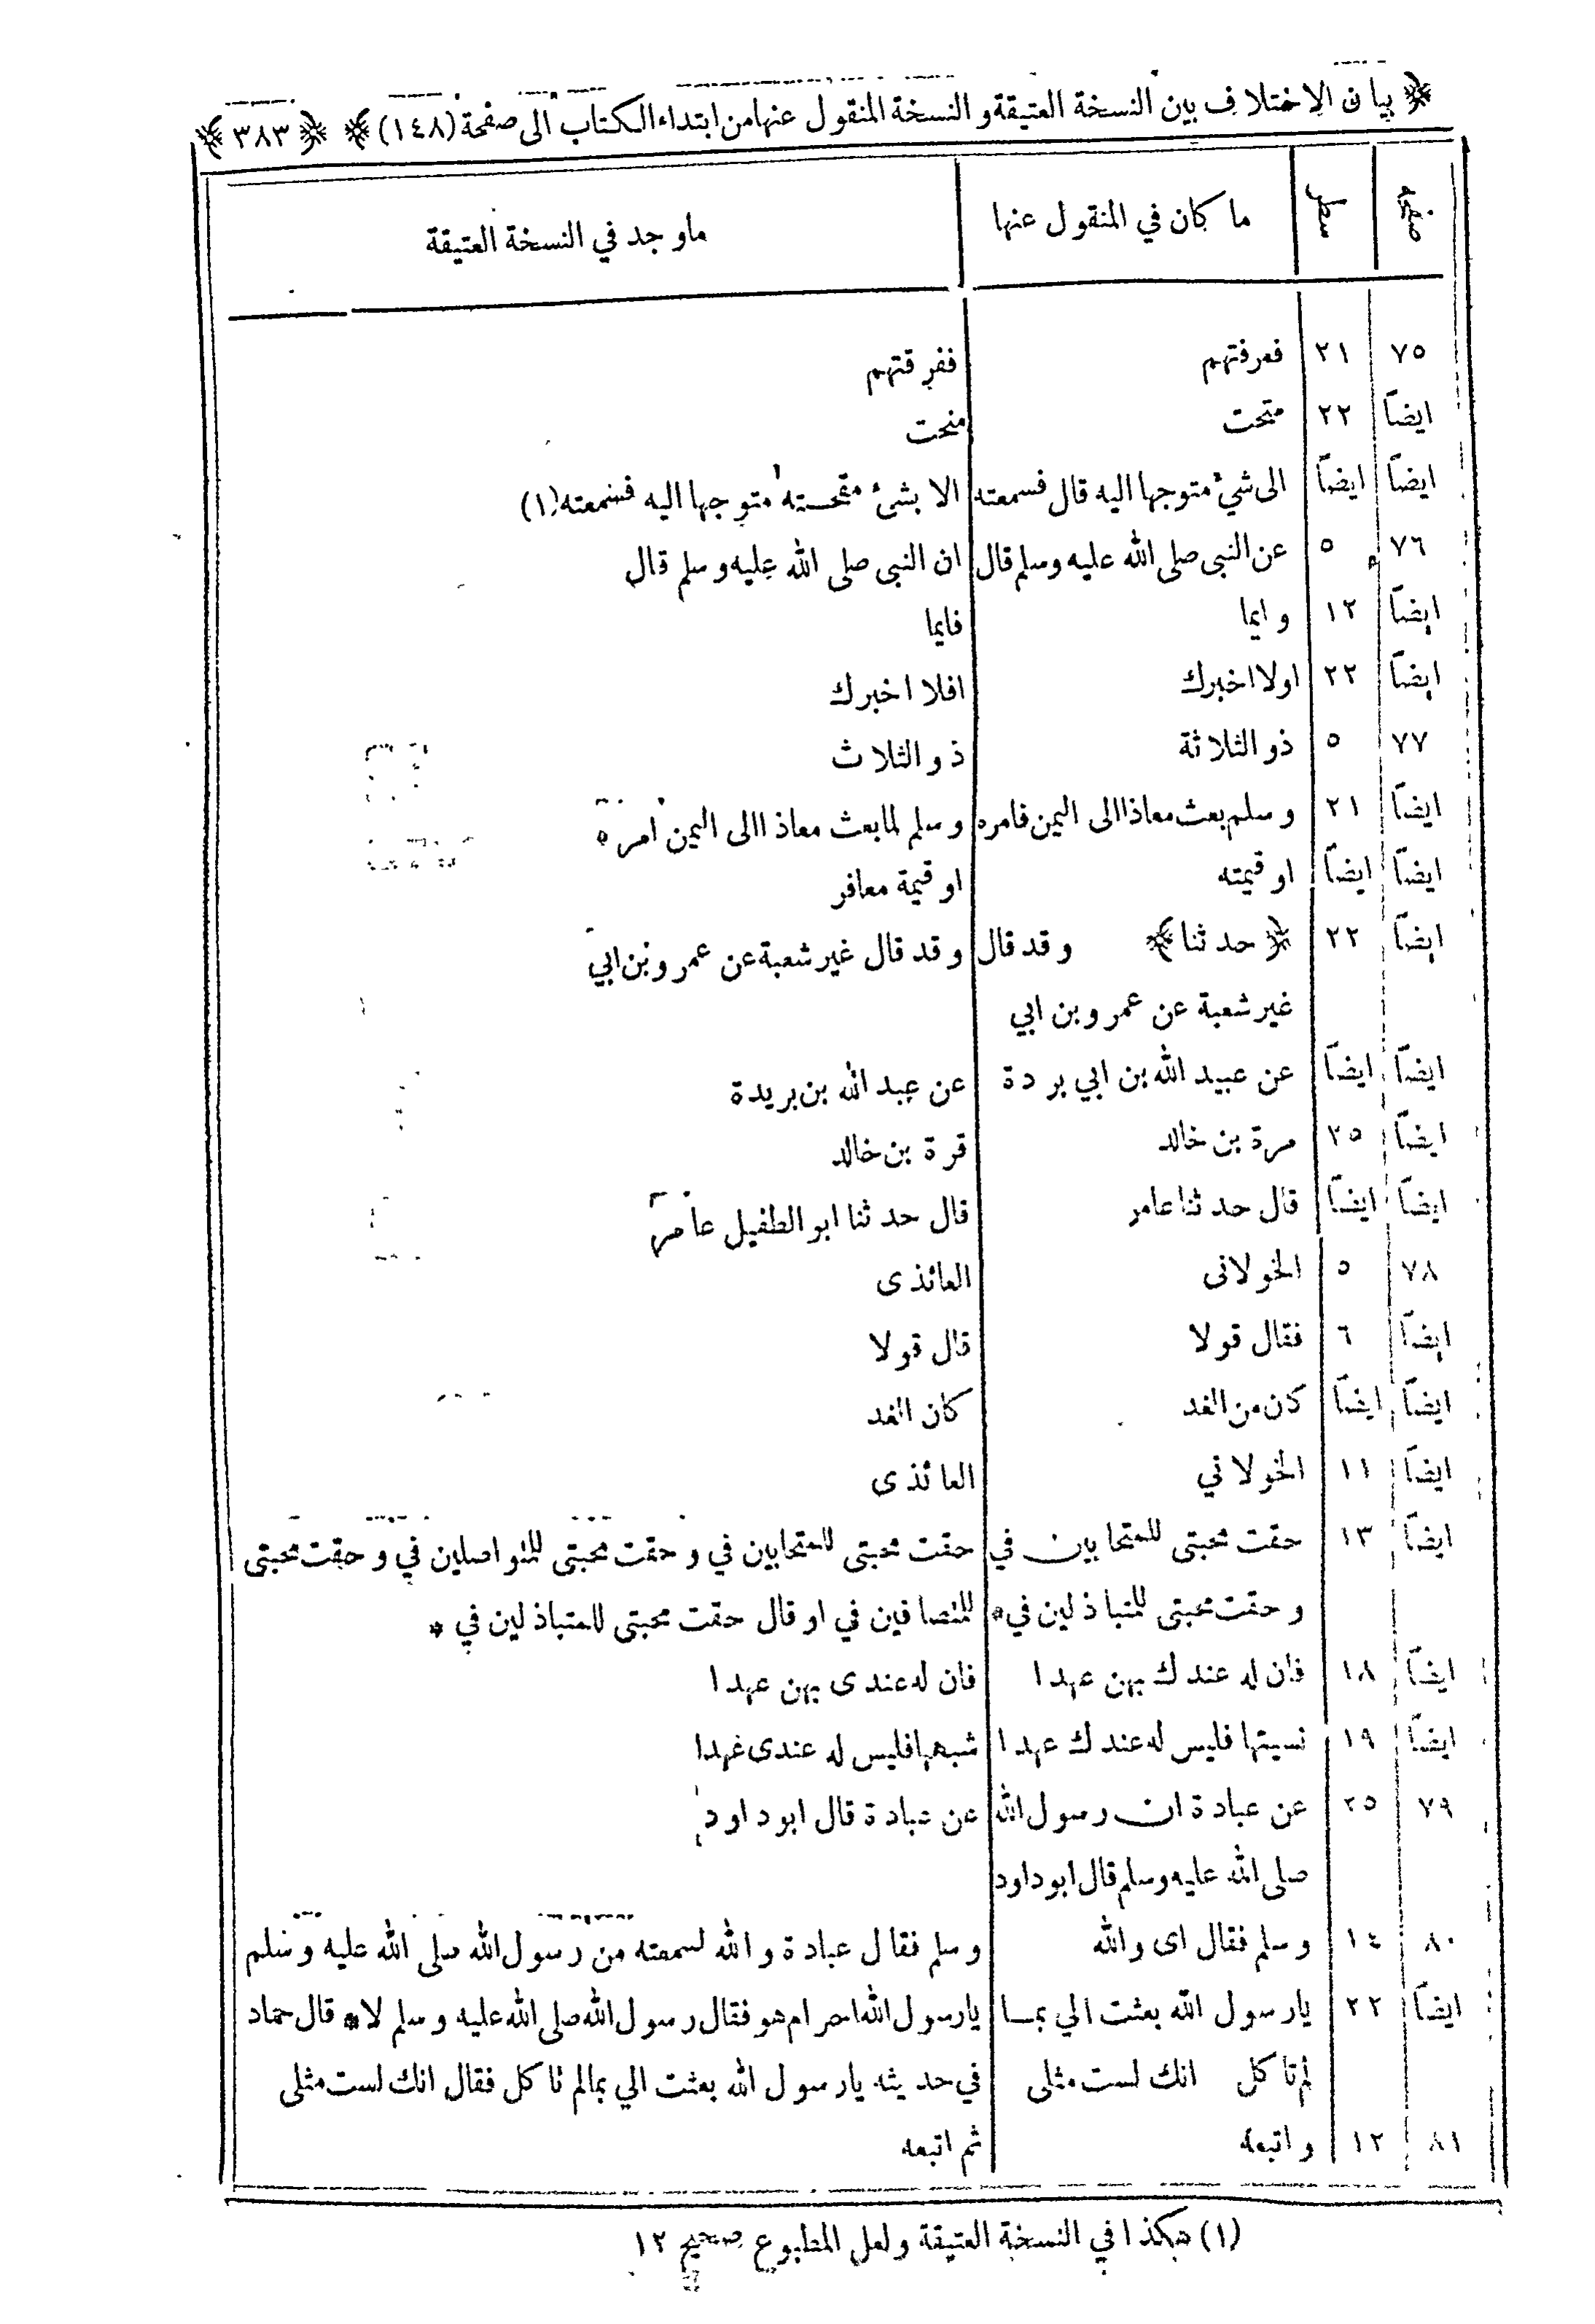 ﴿ بيان الاختلاف بين النسخة العتيقة و النسخة المنقول عنها من ابتداء الكتاب الى صفحة (١٤٨) ﴾ ﴿ ٣٨٣ ﴾
صفحه سطر ما كان في المنقول عنها ما وجد في النسخة العتيقة
٧٥ ٢١ فعرفتهم ففرقتهم
ايضاً ٢٢ متحت منحت
ايضاً ايضاً الى شيء متوجها اليه قال فسمعته الا بشئ متوجها اليه فسمعته (١)
٧٦ ٥ عن النبى صلى الله عليه وسلم قال ان النبى صلى الله عليه وسلم قال
ايضاً ١٢ و ايما فايما
ايضاً ٢٢ اولا اخبرك افلا اخبرك
٧٧ ٥ ذو الثلاثة ذو الثلاث
ايضاً ٢١ وسلم بعث معاذا الى اليمن فامره وسلم لما بعث معاذا الى اليمن امره
ايضاً ايضاً او قيمته او قيمة معافر
ايضاً ٢٢ ﴿ حدثنا ﴾ وقد قال وقد قال غير شعبة عن عمرو بن ابي
غير شعبة عن عمرو بن ابي
ايضاً ايضاً عن عبيد الله بن ابي بردة عن عبد الله بن بريدة
ايضاً ٢٥ مرة بن خالد قرة بن خالد
ايضاً ايضاً قال حدثنا عامر قال حدثنا ابو الطفيل عامر
٧٨ ٥ الخولانى العائذى
ايضاً ٦ فقال قولا قال قولا
ايضاً ايضاً كان من الغد كان الغد
ايضاً ١١ الخولاني العائذى
ايضاً ١٣ حقت محبتى للمتحابين في حقت محبتى للمتحابين في و حقت محبتى للمتواصلين في و حقت محبتى
و حقت محبتى للمتباذلين في * للمتصافين في او قال حقت محبتى للمتباذلين في *
ايضاً ١٨ فان له عندك بهن عهدا فان له عندى بهن عهدا
ايضاً ١٩ نسيتها فليس له عندك عهدا فليس له عندى عهدا
٧٩ ٢٥ عن عبادة ان رسول الله عن عبادة قال ابو داود
صلى الله عليه وسلم قال ابو داود
٨٠ ١٤ وسلم فقال اى والله وسلم فقال عبادة والله لسمعته من رسول الله صلى الله عليه وسلم
ايضاً ٢٢ يا رسول الله بعثت الي بما يا رسول الله احرام هو فقال رسول الله صلى الله عليه وسلم لا * قال حماد
لم تاكل انك لست مثلى في حديثه يا رسول الله بعثت الي بما لم تاكل فقال انك لست مثلى
٨١ ١٢ و اتبعه ثم اتبعه
(١) هكذا في النسخة العتيقة و لعل المطبوع صحيح ١٢